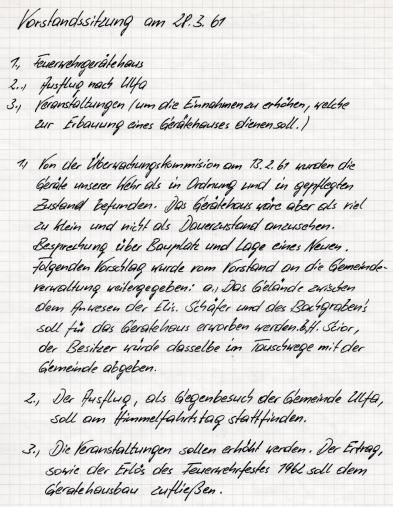 Vorstandssitzung am 28.3.61
1., Feuerwehrgerätehaus
2., Ausflug nach Ulfa
3., Veranstaltungen (um die Einnahmen zu erhöhen, welche
zur Erbauung eines Gerätehauses dienen soll.)
1., Von der Überwachungskommision am 13.2.61 wurden die
Geräte unserer Wehr als in Ordnung und in gepflegten
Zustand befunden. Das Gerätehaus wäre aber als viel
zu klein und nicht als Dauerzustand anzusehen.
Besprechung über Bauplatz und Lage eines Neuen.
Folgenden Vorschlag wurde vom Vorstand an die Gemeinde-
verwaltung weitergegeben: a., Das Gelände zwischen
dem Anwesen der Elis. Schäfer und des Bachgraben's
soll für das Gerätehaus erworben werden. b., H. Scior,
der Besitzer würde dasselbe im Tauschwege mit der
Gemeinde abgeben.
2., Der Ausflug, als Gegenbesuch der Gemeinde Ulfa,
soll am Himmelfahrtstag stattfinden.
3., Die Veranstaltungen sollen erhöht werden. Der Ertrag,
sowie der Erlös des Feuerwehrfestes 1962 soll dem
Gerätehausbau zufließen.